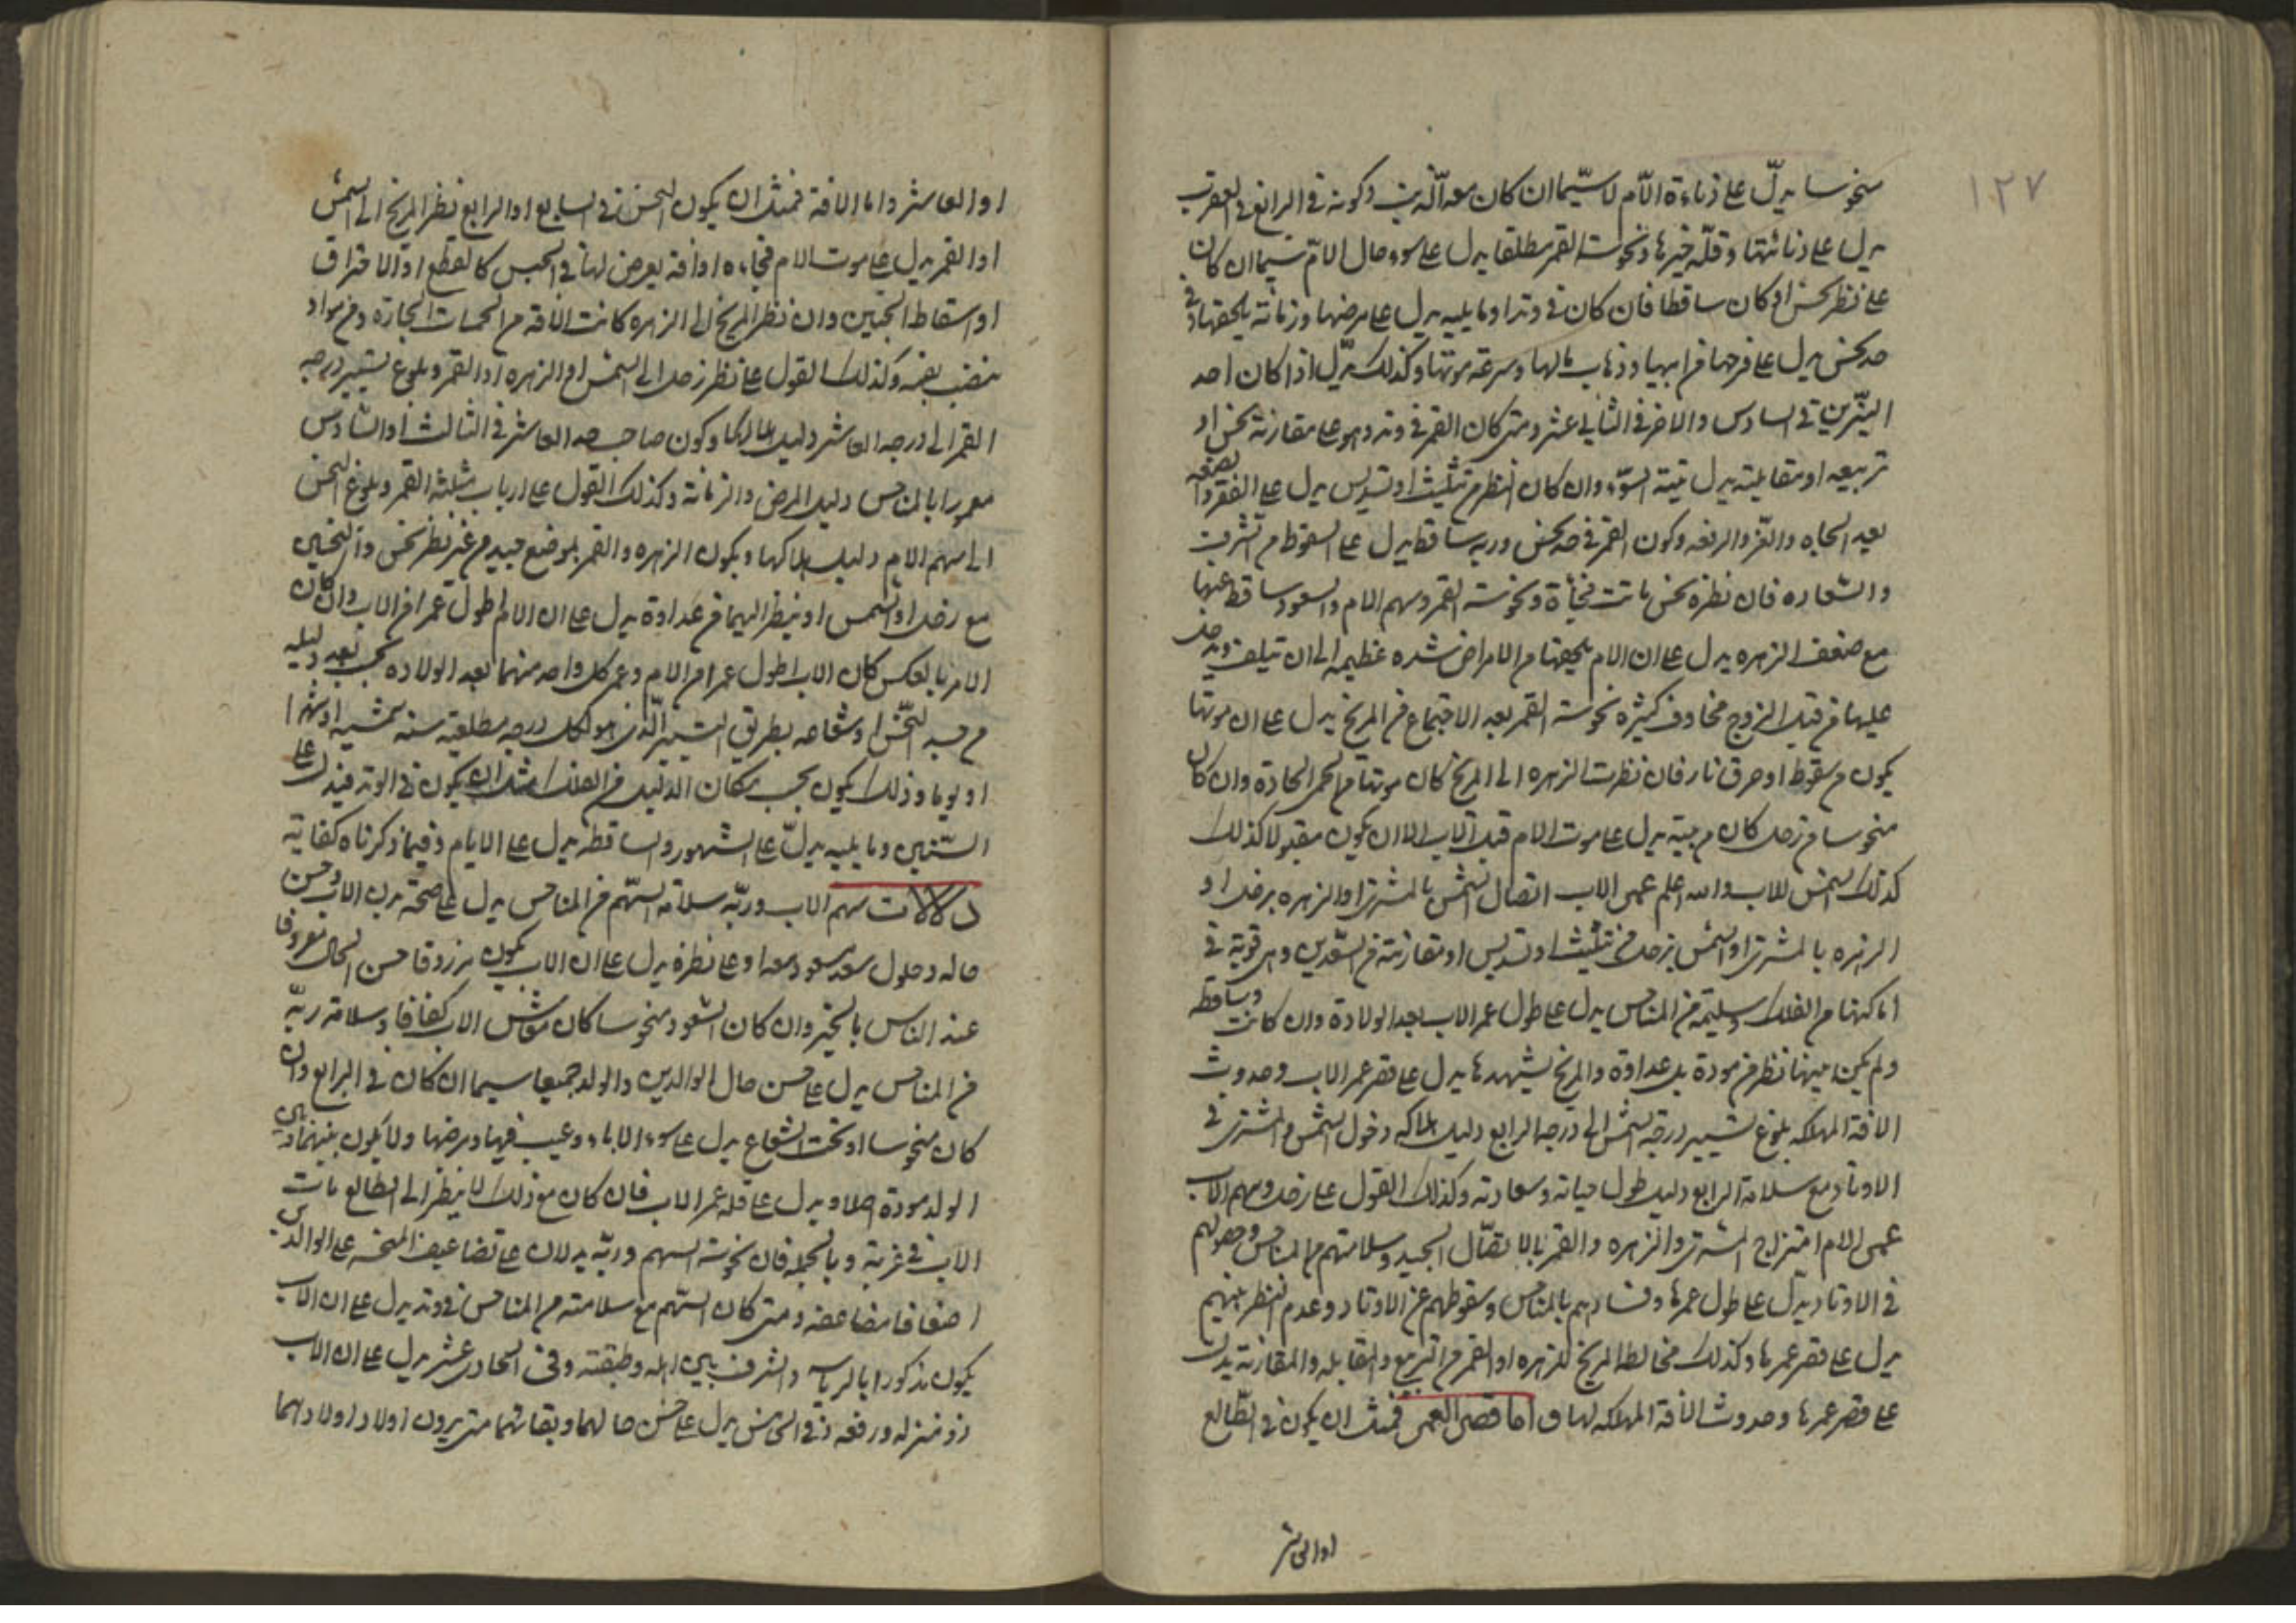 ١٢٧
منحوسا يدلّ على دناءة الامّ لا سيّما ان كان معه الذنب وكونه فى الرابع فى العقرب
يدل على دنائتها وقلّة خيرها ونحوسة القمر مطلقا يدل على سوء حال الامّ سيما ان كان
على نظر نحس او كان ساقطا فان كان فى وتد او ما يليه يدل على مرضها وزمانة يلحقها وفى
حد نحس يدل على فرحها من ابيها وذهاب مالها وسرعة موتها وكذلك يدّل اذا كان احد
النيّرين فى السادس والاخر فى الثانى عشر ومتى كان القمر فى وتد وهو على مقارنة نحس او
تربيعه او مقابلته يدل ميتة السوء وان كان النظر من تثليث او تسديس يدل على الفقر والضعة
بعد الجاه والعز والرفعه وكون القمر فى حد نحس وربه ساقط يدل على السقوط من الشرف
والسعاده فان نظره نحس ماتت فجأة ونحوسة القمر وسهم الام والسعود ساقط عنها
مع ضعف الزهره يدل على ان الام يلحقها من الامراض شده عظيمه الى ان تتلف ويدخل
عليها من قبل الزوج مخاوف كثيره نحوسة القمر بعد الاجتماع من المريخ يدل على ان موتها
يكون من سقوط او حرق نار فان نظرت الزهره الى المريخ كان موتها من الحمى الحادة وان كان
منحوسا من زحل كان من جبته يدل على موت الام قبل الاب الا ان يكون مقبولا كذلك
كذلك الشمس للاب والله اعلم عمر الاب اتصال الشمس بالمشترى او الزهره بزحل او
الزهره بالمشترى او الشمس بزحل من تثليث او تسديس او مقارنة من السعدين وهى قوية فى
اماكنها من الفلك وسليمة من المناحس يدل على طول عمر الاب بعد الولادة وان كانت وساقطه
ولم يكن بينها نظر من مودة بل عداوة والمريخ يشهدها يدل على قصر عمر الاب وحدوث
الافة المهلكه بلوغ تسيير درجة الشمس الى درجة الرابع دليل هلاكه دخول الشمس والمشترى فى
الاوتاد مع سلامة الرابع دليل طول حياته وسعادته وكذلك القول على زحل وسهم الاب
عمر الام امتزاج المشترى والزهره والقمر بالاتصّال الجيد وسلامتهم من المناحس وحصولهم
فى الاوتاد يدّل على طول عمرها وفسادهم بالمناحس وسقوطهم عن الاوتاد وعدم النظر بينهم
يدل على قصر عمرها وكذلك مخالطة المريخ للزهره او القمر من التربيع والمقابله والمقارنة يدل
على قصر عمرها وحدوث الافة المهلكه لها ق اما قصر العمر فمثل ان يكون فى الطّالع
او العاشر
او العاشر واما الافة فمثل ان يكون النحس فى السابع او الرابع نظر المريخ الى الشمس
او القمر يدل على موت الام فجاءه او افة يعرض لها فى الحبس كالقطع او الاحتراق
او اسقاط الجنين وان نظر المريخ الى الزهره كانت الافة من الحميات الحارة ومن مواد
تنضب بفمه وكذلك القول على نظر زحل الى الشمس او الزهره او القمر وبلوغ تسيير درجه
القمر الى درجه العاشر دليل هلاكها وكون صاحب حد العاشر فى الثالث او السادس
معمورا بالمناحس دليل المرض والزمانة وكذلك القول على ارباب مثلثة القمر وبلوغ النحس
الى سهم الام دليل هلاكها ويكون الزهره والقمر بموضع جيد من غير نظر نحس والنحسين
مع زحل او الشمس او ينظر اليهما من عداوة يدل على ان الام اطول عمرا من الاب وان كان
الامر بالعكس كان الاب اطول عمرا من الام وعمر كل واحد منهما بعد الولاده بحسب بعد دليله
من جسد النحّس او شعاعه بطريق التسيير الّذى هو لكل درجه مطلعيه سنه شمسيه او شهرا
او يوما وذلك يكون بحسب مكان الدليل من الفلك مثل ان يكون فى الوتد فيدل على
السّنين وما يليه يدلّ على الشهور والساقط يدل على الايام وفيما ذكرناه كفاية
دلالات سهم الاب وربّه سلامة السّهم من المناحس يدل على صحة بدن الاب وحسن
حاله وحلول سعد مسعود معه او على نظره يدل على ان الاب يكون مرزوقا حسن الحال معروفا
عند الناس بالخير وان كان السّعود منحوسا كان معاش الاب كفافا وسلامة ربّه
من المناحس يدل على حسن حال الوالدين والولد جميعا سيما ان كان فى الرابع وان
كان منحوسا او تحت الشعاع يدل على سوء الاباء وعيب فيها ومرضها ولا يكون بينهما وبين
الولد مودة اصلا ويدل على قله عمر الاب فان كان مع ذلك لا ينظر الى الطالع مات
الاب فى غربة وبالجمله فان نحوسة السهم وربّه يدلان على تضاعيف المنحسه على الوالدين
اضعافا مضاعفه ومتى كان السّهم مع سلامته من المناحس فى وتد يدل على ان الاب
يكون مذكورا بالرياسه والشرف بين اهله وطبقته وفى الحادى عشر يدل على ان الاب
ذو منزله ورفعه وفى الخامس يدل على حسن حالهما وبقائهما متى يرون اولاد اولادهما